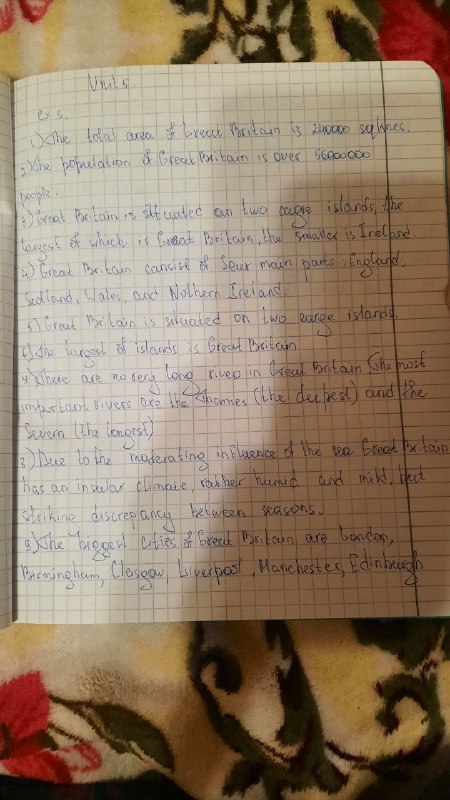 Unit 5.
ex 5.
1) The total area of Great Britain is 240000 sq kmes.
2) The population of Great Britain is over 56000000
people.
3) Great Britain is situated on two large islands, the
largest of which is Great Britain, the smaller is Ireland.
4) Great Britain consist of four main parts: England,
Scotland, Wales, and Nothern Ireland.
5) Great Britain is situated on two large islands.
6) The largest of islands is Great Britain
7) There are no very long rivers in Great Britain The most
important rivers are the Thames (the deepest) and the
Severn (the longest)
8) Due to the moderating influence of the sea Great Britain
has an insular climate, rather humid and mild, but
striking discrepancy between seasons.
9) The biggest cities of Great Britain are London,
Birmingham, Glasgow, Liverpool, Manchester, Edinburgh